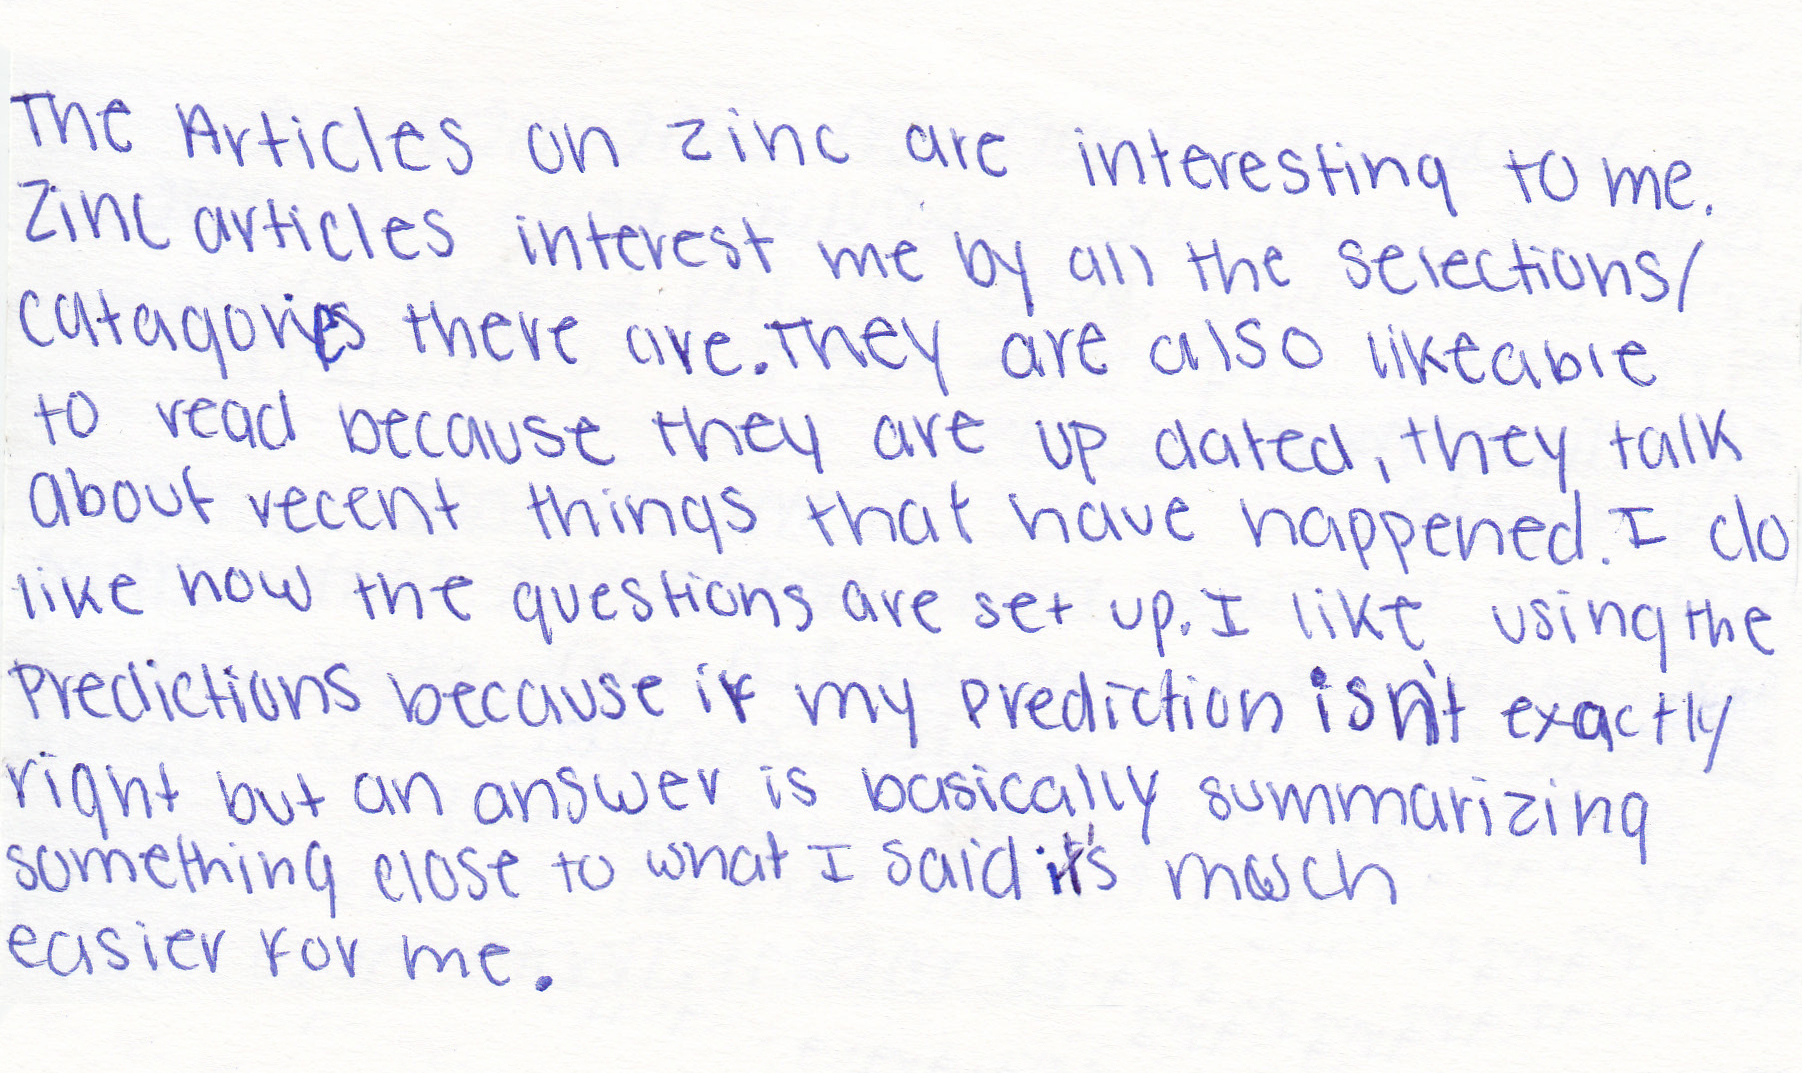 The Articles on zinc are interesting to me.
Zinc articles interest me by all the selections/
catagories there are. They are also likeable
to read because they are up dated, they talk
about recent things that have happened. I do
like how the questions are set up. I like using the
Predictions because if my prediction isn't exactly
right but an answer is basically summarizing
something close to what I said it's much
easier for me.